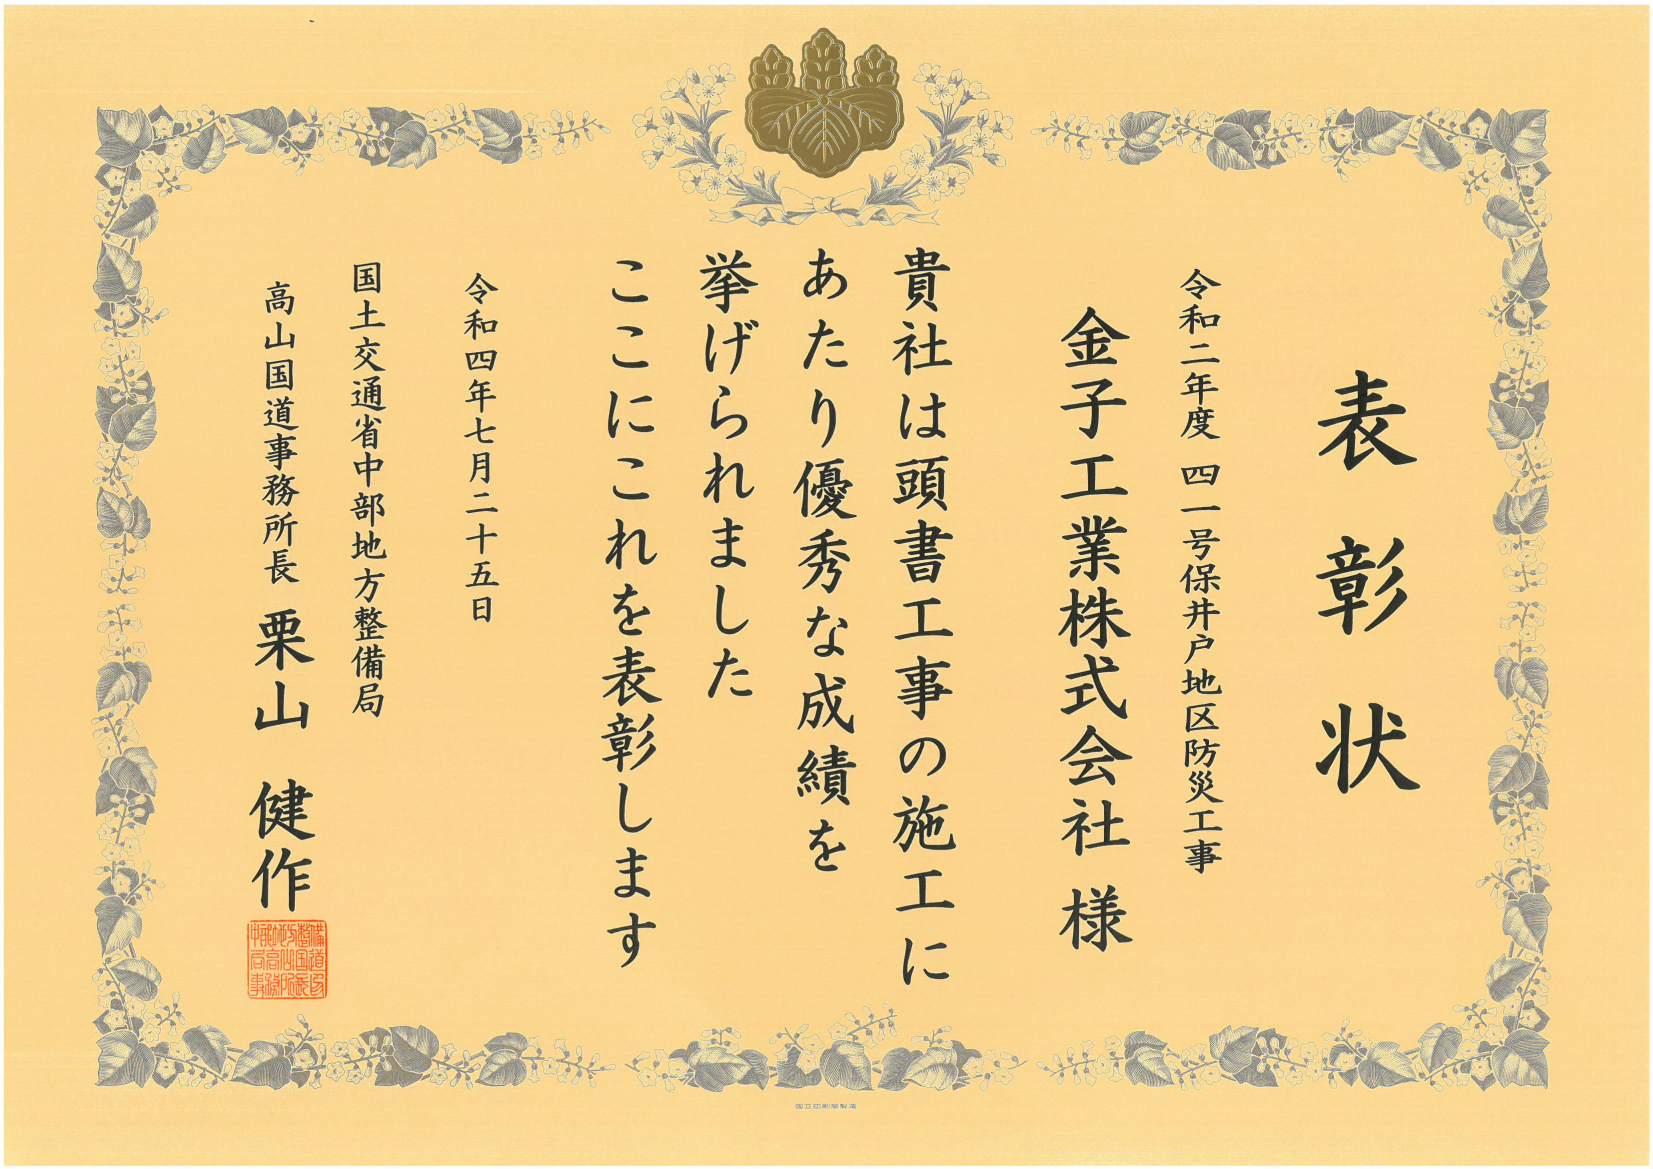 表彰状
令和二年度 四一号保井戸地区防災工事
金子工業株式会社 様
貴社は頭書工事の施工に
あたり優秀な成績を
挙げられました
ここにこれを表彰します
令和四年七月二十五日
国土交通省中部地方整備局
高山国道事務所長 栗山 健作
国立印刷局製造